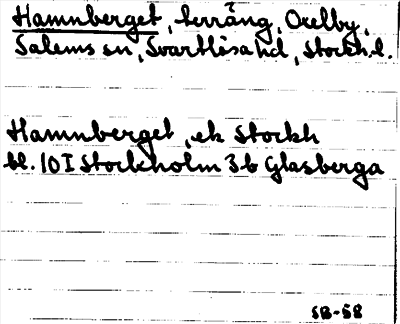 Hamnberget, terräng, Oxelby,
Salems sn, Svartlösa hd, Stockh.l.
Hamnberget, ek Stockh
bl. 10 I Stockholm 3 b Glasberga
SB-58